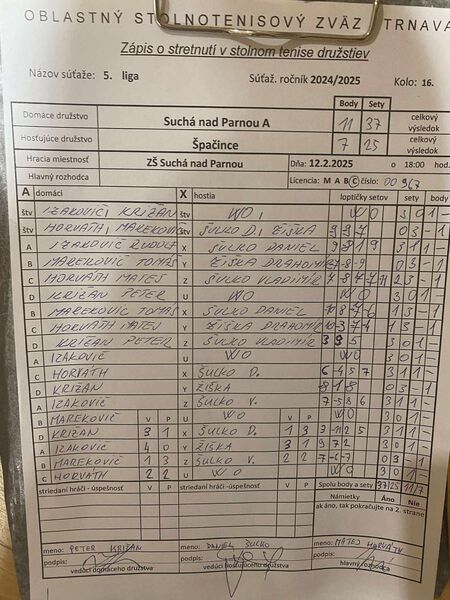 OBLASTNÝ STOLNOTENISOVÝ ZVÄZ TRNAVA
Zápis o stretnutí v stolnom tenise družstiev
Názov súťaže: 5. liga Súťaž. ročník 2024/2025 Kolo: 16.
Body Sety
Domáce družstvo Suchá nad Parnou A 11 37 celkový výsledok
Hosťujúce družstvo Špačince 7 25 celkový výsledok
Hracia miestnosť ZŠ Suchá nad Parnou Dňa: 12.2.2025 o 18:00 hod.
Hlavný rozhodca Licencia: M A B C číslo: 00967
A domáci X hostia loptičky setov sety body
štv IZAKOVIČ, KRIŽAN WO, WO 3 0 1 -
štv HORVÁTH, MAREKOVIČ ŠULKO D, ŽIŠKA 0 3 - 1
A IZAKOVIČ RUDOLF X ŠULKO DANIEL 3 1 1 -
B MAREKOVIČ TOMÁŠ Y ŽIŠKA DRAHOMÍR 0 3 - 1
C HORVÁTH MATEJ Z ŠULKO VLADIMÍR
D KRIŽAN PETER U WO WO 3 0 1 -
B MAREKOVIČ TOMÁŠ X ŠULKO DANIEL 1 3 - 1
C HORVÁTH MATEJ Y ŽIŠKA DRAHOMÍR 1 3 - 1
D KRIŽAN PETER Z ŠULKO VLADIMÍR 3 0 1 -
A IZAKOVIČ U WO WO 3 0 1 -
C HORVÁTH X ŠULKO D. 3 1 1 -
D KRIŽAN Y ŽIŠKA 0 3 - 1
A IZAKOVIČ Z ŠULKO V. 3 1 1 -
B MAREKOVIČ V P U WO V P WO 3 0 1 -
D KRIŽAN 3 1 X ŠULKO D. 1 3 3 1 1 -
A IZAKOVIČ 4 0 Y ŽIŠKA 3 1 3 0 1 -
B MAREKOVIČ 1 3 Z ŠULKO V. 2 2 0 3 - 1
C HORVÁTH 2 2 U WO WO 3 0 1 -
striedaní hráči - úspešnosť V P striedaní hráči - úspešnosť V P Spolu body a sety 37 25 11 7
Námietky Áno Nie
ak áno, tak pokračujte na 2. strane
meno: PETER KRIŽAN meno: DANIEL ŠULKO meno: MATEJ HORVÁTH
podpis: podpis: podpis:
vedúci domáceho družstva vedúci hosťujúceho družstva hlavný rozhodca